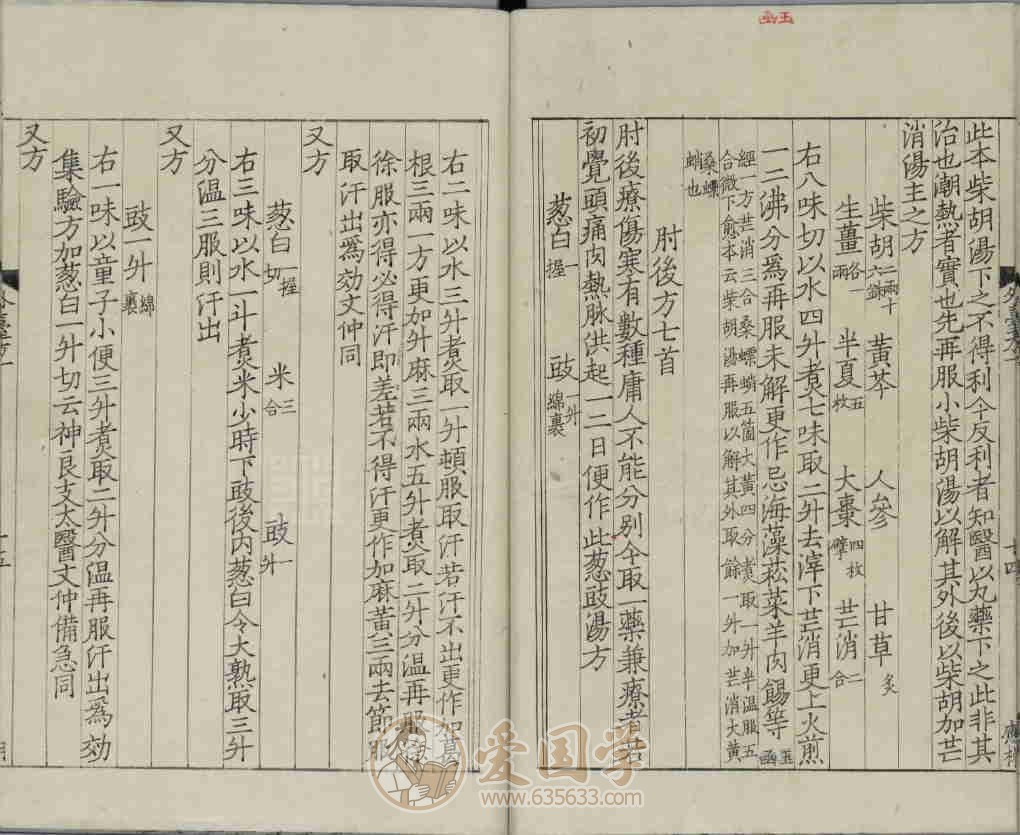 此本柴胡湯下之不得利今反利者知醫以丸藥下之此非其
治也潮熱者實也先再服小柴胡湯以解其外後以柴胡加芒
消湯主之方
柴胡二兩十六銖 黃芩 人參 甘草炙
生薑各一兩 半夏五枚 大棗四枚擘 芒消二合
右八味切以水四升煮七味取二升去滓下芒消更上火煎
一二沸分為再服未解更作忌海藻菘菜羊肉餳等玉函
經一方芒消三合桑螵蛸五箇大黃四分煮取一升半溫服五
合微下愈本云柴胡湯再服以解其外取餘一升加芒消大黃
桑螵
蛸也
肘後方七首
肘後療傷寒有數種庸人不能分別今取一藥兼療者若
初覺頭痛肉熱脉洪起一二日便作此葱豉湯方
葱白一握 豉一升綿裹
右二味以水三升煮取一升頓服取汗若汗不出更作加葛
根三兩一方更加升麻三兩水五升煮取二升分溫再服
徐服亦得必得汗即差若不得汗更作加麻黃三兩去節
取汗出為効文仲同
又方
葱白一握切 米三合 豉一升
右三味以水一斗煮米少時下豉後內葱白令大熟取三升
分溫三服則汗出
又方
豉一升綿裹
右一味以童子小便三升煮取二升分溫再服汗出為効
集驗方加葱白一升切云神良支太醫文仲備急同
又方
玉函
十四
爱国学
www.635633.com